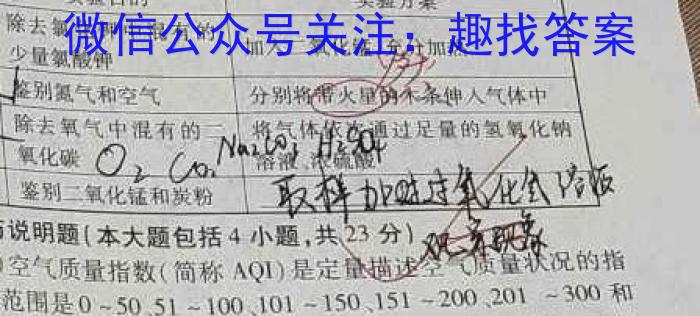 实验目的 实验方案
微信公众号关注：趣找答案
除去氯 钾中混有的
少量氯酸钾 加入二氧化锰,充分加热
鉴别氮气和空气 分别将带火星的木条伸入气体中
除去氧气中混有的二 将气体依次通过足量的氢氧化钠
氧化碳 溶液、浓硫酸
O2 CO2 Na2CO3 H2SO4
鉴别二氧化锰和炭粉 取样加过氧化氢溶液
观察现象
与说明题(本大题包括4小题,共23分)
)空气质量指数(简称 AQI)是定量描述空气质量状况的指
范围是0~50、51~100、101~150、151~200、201~300和